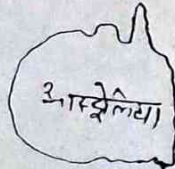 आस्ट्रेलिया